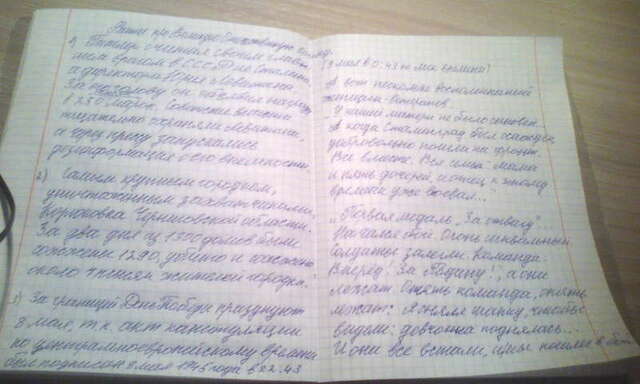 Факты про Великую Отечественную войну.
1) Гитлер считал своим глав-
ным врагом в СССР не Сталина,
а диктора Юрия Левитана.
За голову он объявил награду
в 250 марок. Советские власти
тщательно охраняли Левитана,
а через прессу запускалась
дезинформация о его внешности
2) Самым крупным городком,
уничтоженным захватчиками,
Корюковка Черниговской области.
За два дня из 1300 домов было
сожжены 1290, добито и сожжено
около 7 тысяч жителей городка.
3) За границей День Победы празднуют
8 мая, т.к. акт капитуляции
по центральноевропейскому времени
был подписан 8 мая 1945 года в 22.43
9 мая в 0:43 по Мск времени!
А вот несколько воспоминаний
женщин-ветеранов.
У нашей матери не было сыновей
А когда Сталинград был осажден,
добровольно пошли на фронт.
Все вместе. Вся семья: мама
и пять дочерей, а отец к этому
времени уже воевал..."
„Первая медаль „За отвагу"...
Начался бой. Огонь шквальный.
Солдаты залегли. Команда:
Вперед! За Родину!, а они
лежат. Опять команда, опять
лежат. Я сняла шапку, чтобы
видели: девчонка поднялась...
И они все встали, и мы пошли в бой